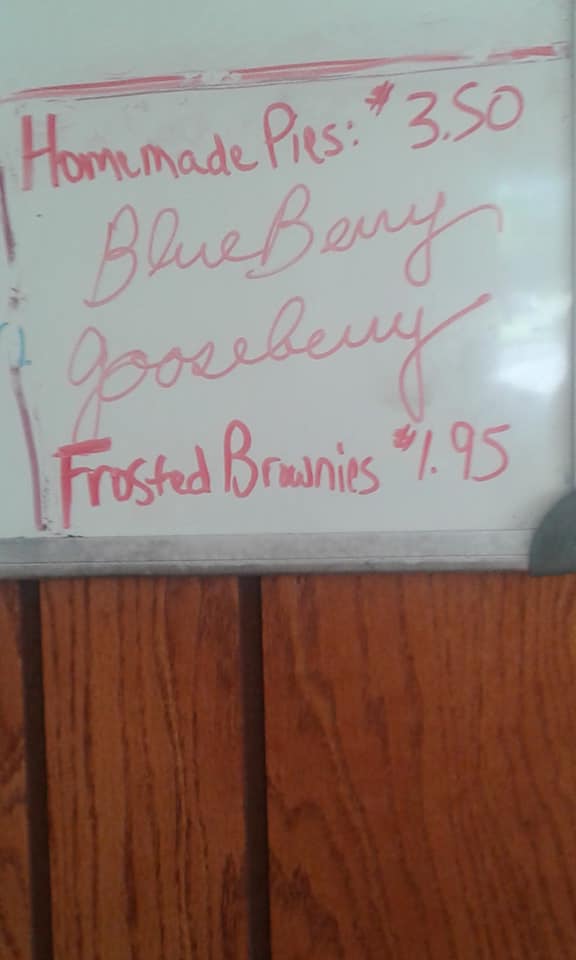 Homemade Pies: $3.50
BlueBerry
gooseberry
Frosted Brownies $1.95